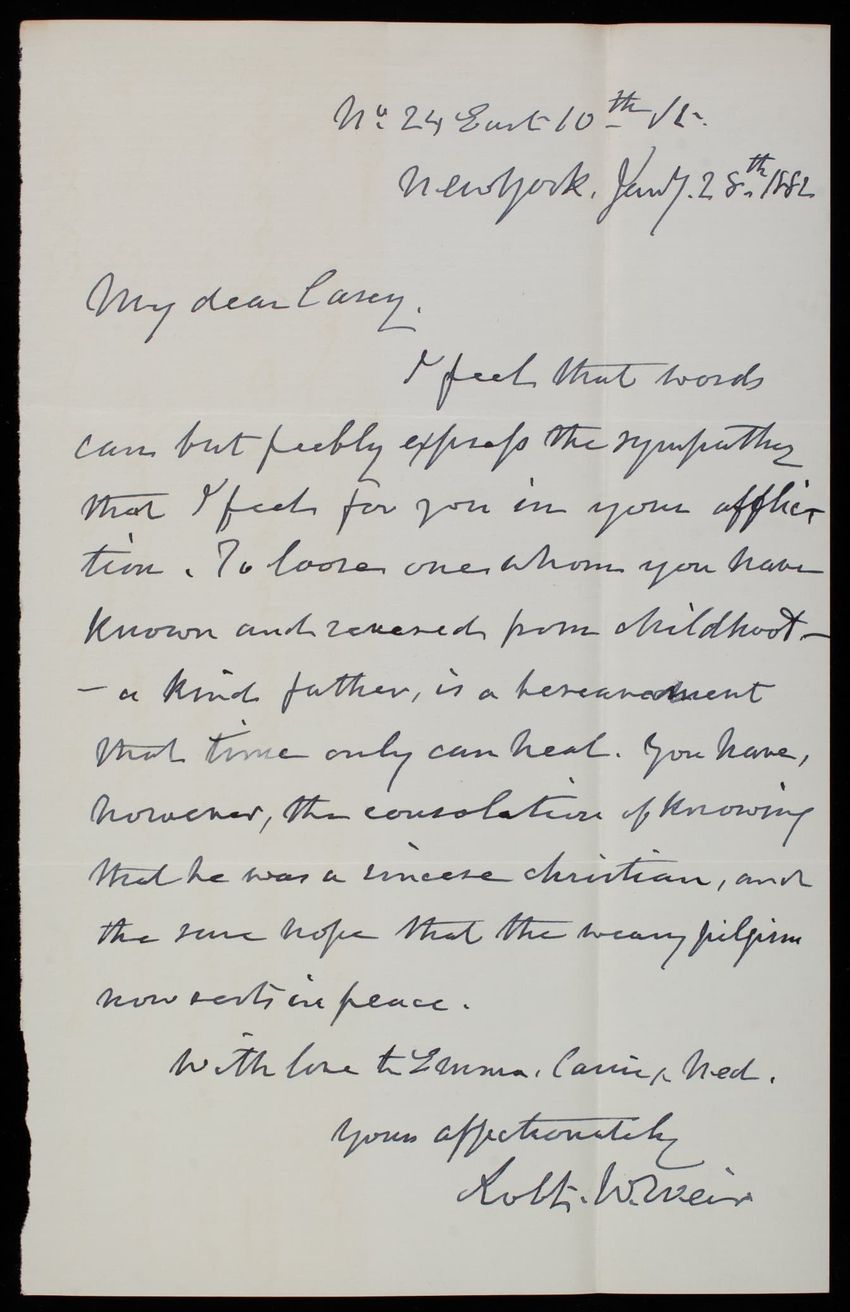 No. 24 East 10th St.
New York. Jany. 28th. 1882
My dear Casey.
I feel that words
can but feebly express the sympathy
that I feel for you in your afflic-
tion. To loose one whom you have
known and revered from childhood -
- a kind father, is a bereavement
that time only can heal. You have,
however, the consolation of knowing
that he was a sincere christian, and
the sure hope that the weary pilgrim
now rests in peace.
With love to Emma. Carrie & Ned.
Yours affectionately
Robt. W. Weir